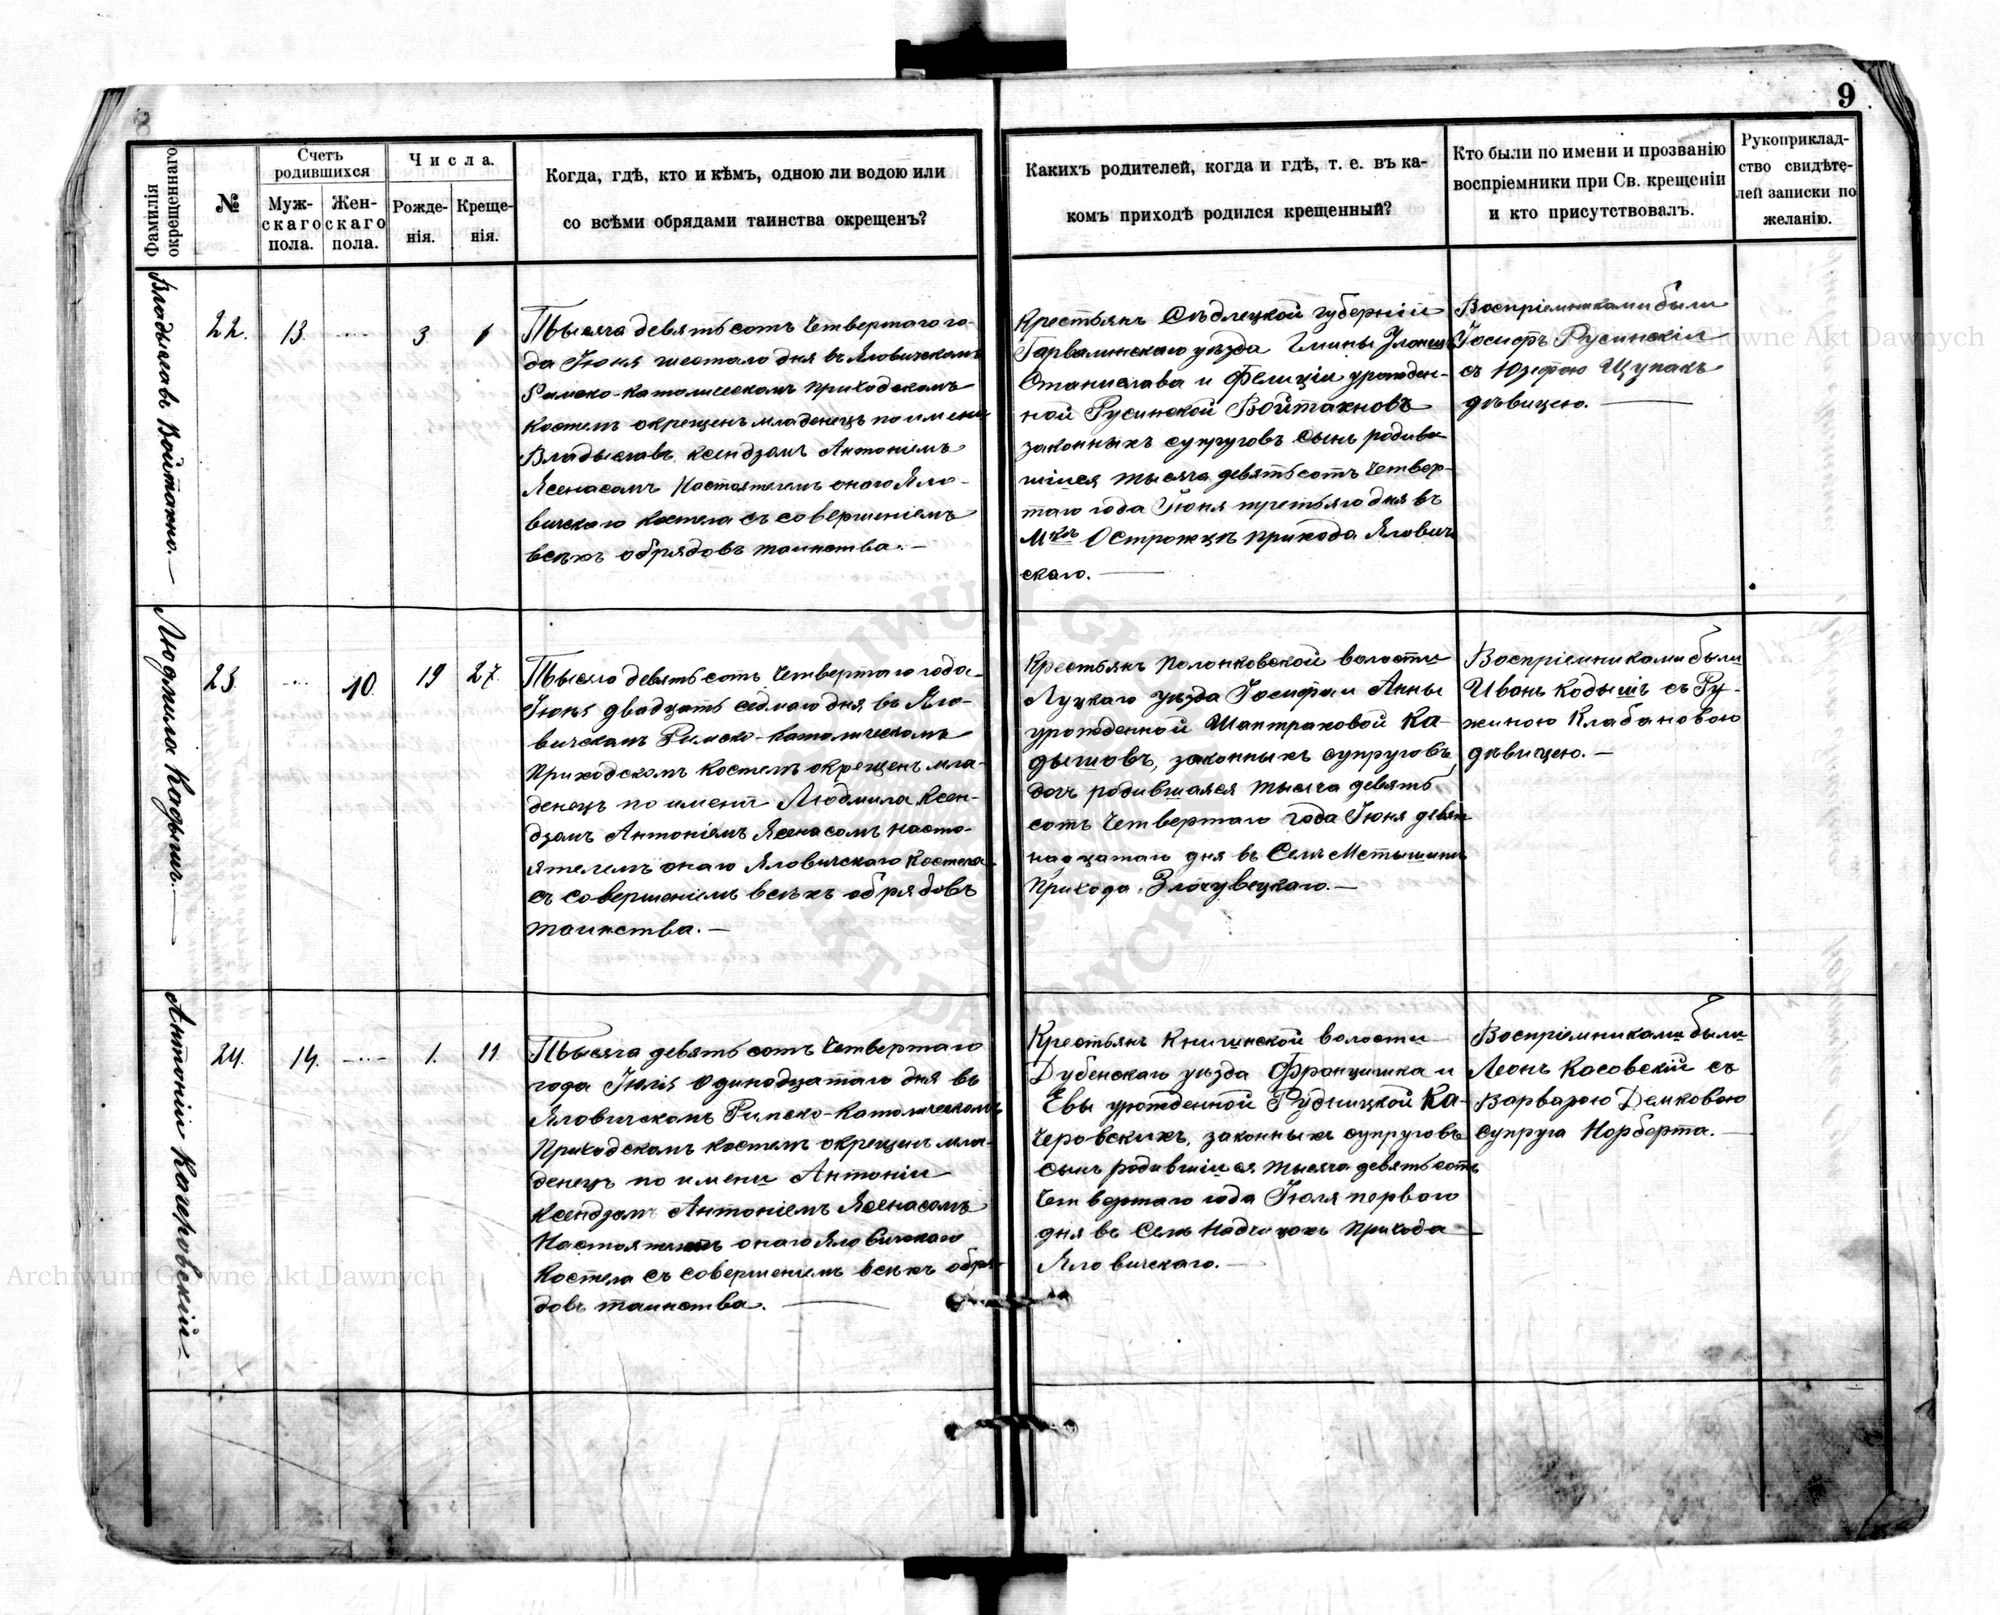 8
9
Фамилія окрещеннаго
№
Счетъ родившихся
Муж-
скаго
пола.
Жен-
скаго
пола.
Числа.
Рожде-
нія.
Креще-
нія.
Когда, гдѣ, кто и кѣмъ, одною ли водою или
со всѣми обрядами таинства окрещенъ?
Каких родителей, когда и гдѣ, т. е. въ ка-
комъ приходѣ родился крещенный?
Кто были по имени и прозванію
воспріемники при Св. крещеніи
и кто присутствовалъ.
Рукоприклад-
ство свидѣте-
лей записки по
желанію.
Владыславъ Войтахно.—
22. 13. .... 3 6
Тысяча девятьсотъ четвертаго го-
да Іюня шестаго дня въ Яловичскомъ
Римско-католическомъ приходскомъ
костелѣ окрещенъ младенецъ по имени
Владыславъ ксендзомъ Антоніемъ
Ясенасомъ Настоятелемъ онаго Яло-
вичскаго костела съ совершеніемъ
всѣхъ обрядовъ таинства.—
Крестьянъ Сѣдлецкой губерніи
Гарволинскаго уѣзда Гмины
Станислава и Фелиціи урожден-
ной Русинской Войтахновъ
законныхъ супруговъ сынъ родив-
шійся тысяча девятьсотъ четвер-
таго года Іюня третьяго дня въ
Мкѣ Острожцѣ прихода Ялович
скаго.—
Воспріемниками были
Іосифъ Русинскій
съ Юзефою Щупакъ
дѣвицею.—
Людмила Кадышъ.—
23. .... 10. 19 27.
Тысяча девятьсотъ четвертаго года
Іюня двадцать седмаго дня въ Яло-
вичскомъ Римско-католическомъ
приходскомъ костелѣ окрещенъ мла-
денецъ по имени Людмила ксен-
дзомъ Антоніемъ Ясенасомъ насто-
ятелемъ онаго Яловичскаго костела
съ совершеніемъ всѣхъ обрядовъ
таинства.—
Крестьянъ Полонковской волости
Луцкаго уѣзда Іосифа и Анны
урожденной Шантраковой Ка-
дышовъ, законныхъ супруговъ,
дочь родившаяся тысяча девять
сотъ четвертаго года Іюня девят
надцатаго дня въ Селѣ
прихода Злочувецкаго.—
Воспріемниками были
Иванъ Кадышъ съ Ру-
жиною Клабановою
дѣвицею.—
Антоній Качеровскій—
24. 14. —..— 1. 11
Тысяча девятьсотъ четвертаго
года Іюля одинадцатаго дня въ
Яловичскомъ Римско-католическомъ
приходскомъ костелѣ окрещенъ мла-
денецъ по имени Антоній
ксендзомъ Антоніемъ Ясенасомъ
Настоятелемъ онаго Яловичскаго
костела съ совершеніемъ всѣхъ обря-
довъ таинства.—
Крестьянъ Княгинской волости
Дубенскаго уѣзда Францишка и
Евы урожденной Рудницкой Ка-
черовскихъ, законныхъ супруговъ
сынъ родившійся тысяча девятьсотъ
четвертаго года Іюля перваго
дня въ Селѣ Надчицахъ прихода
Яловичскаго.—
Воспріемниками были
Леонъ Косовскій съ
Варварою Демковою
супруга Норберта.—
Archiwum Główne Akt Dawnych
Archiwum Główne Akt Dawnych